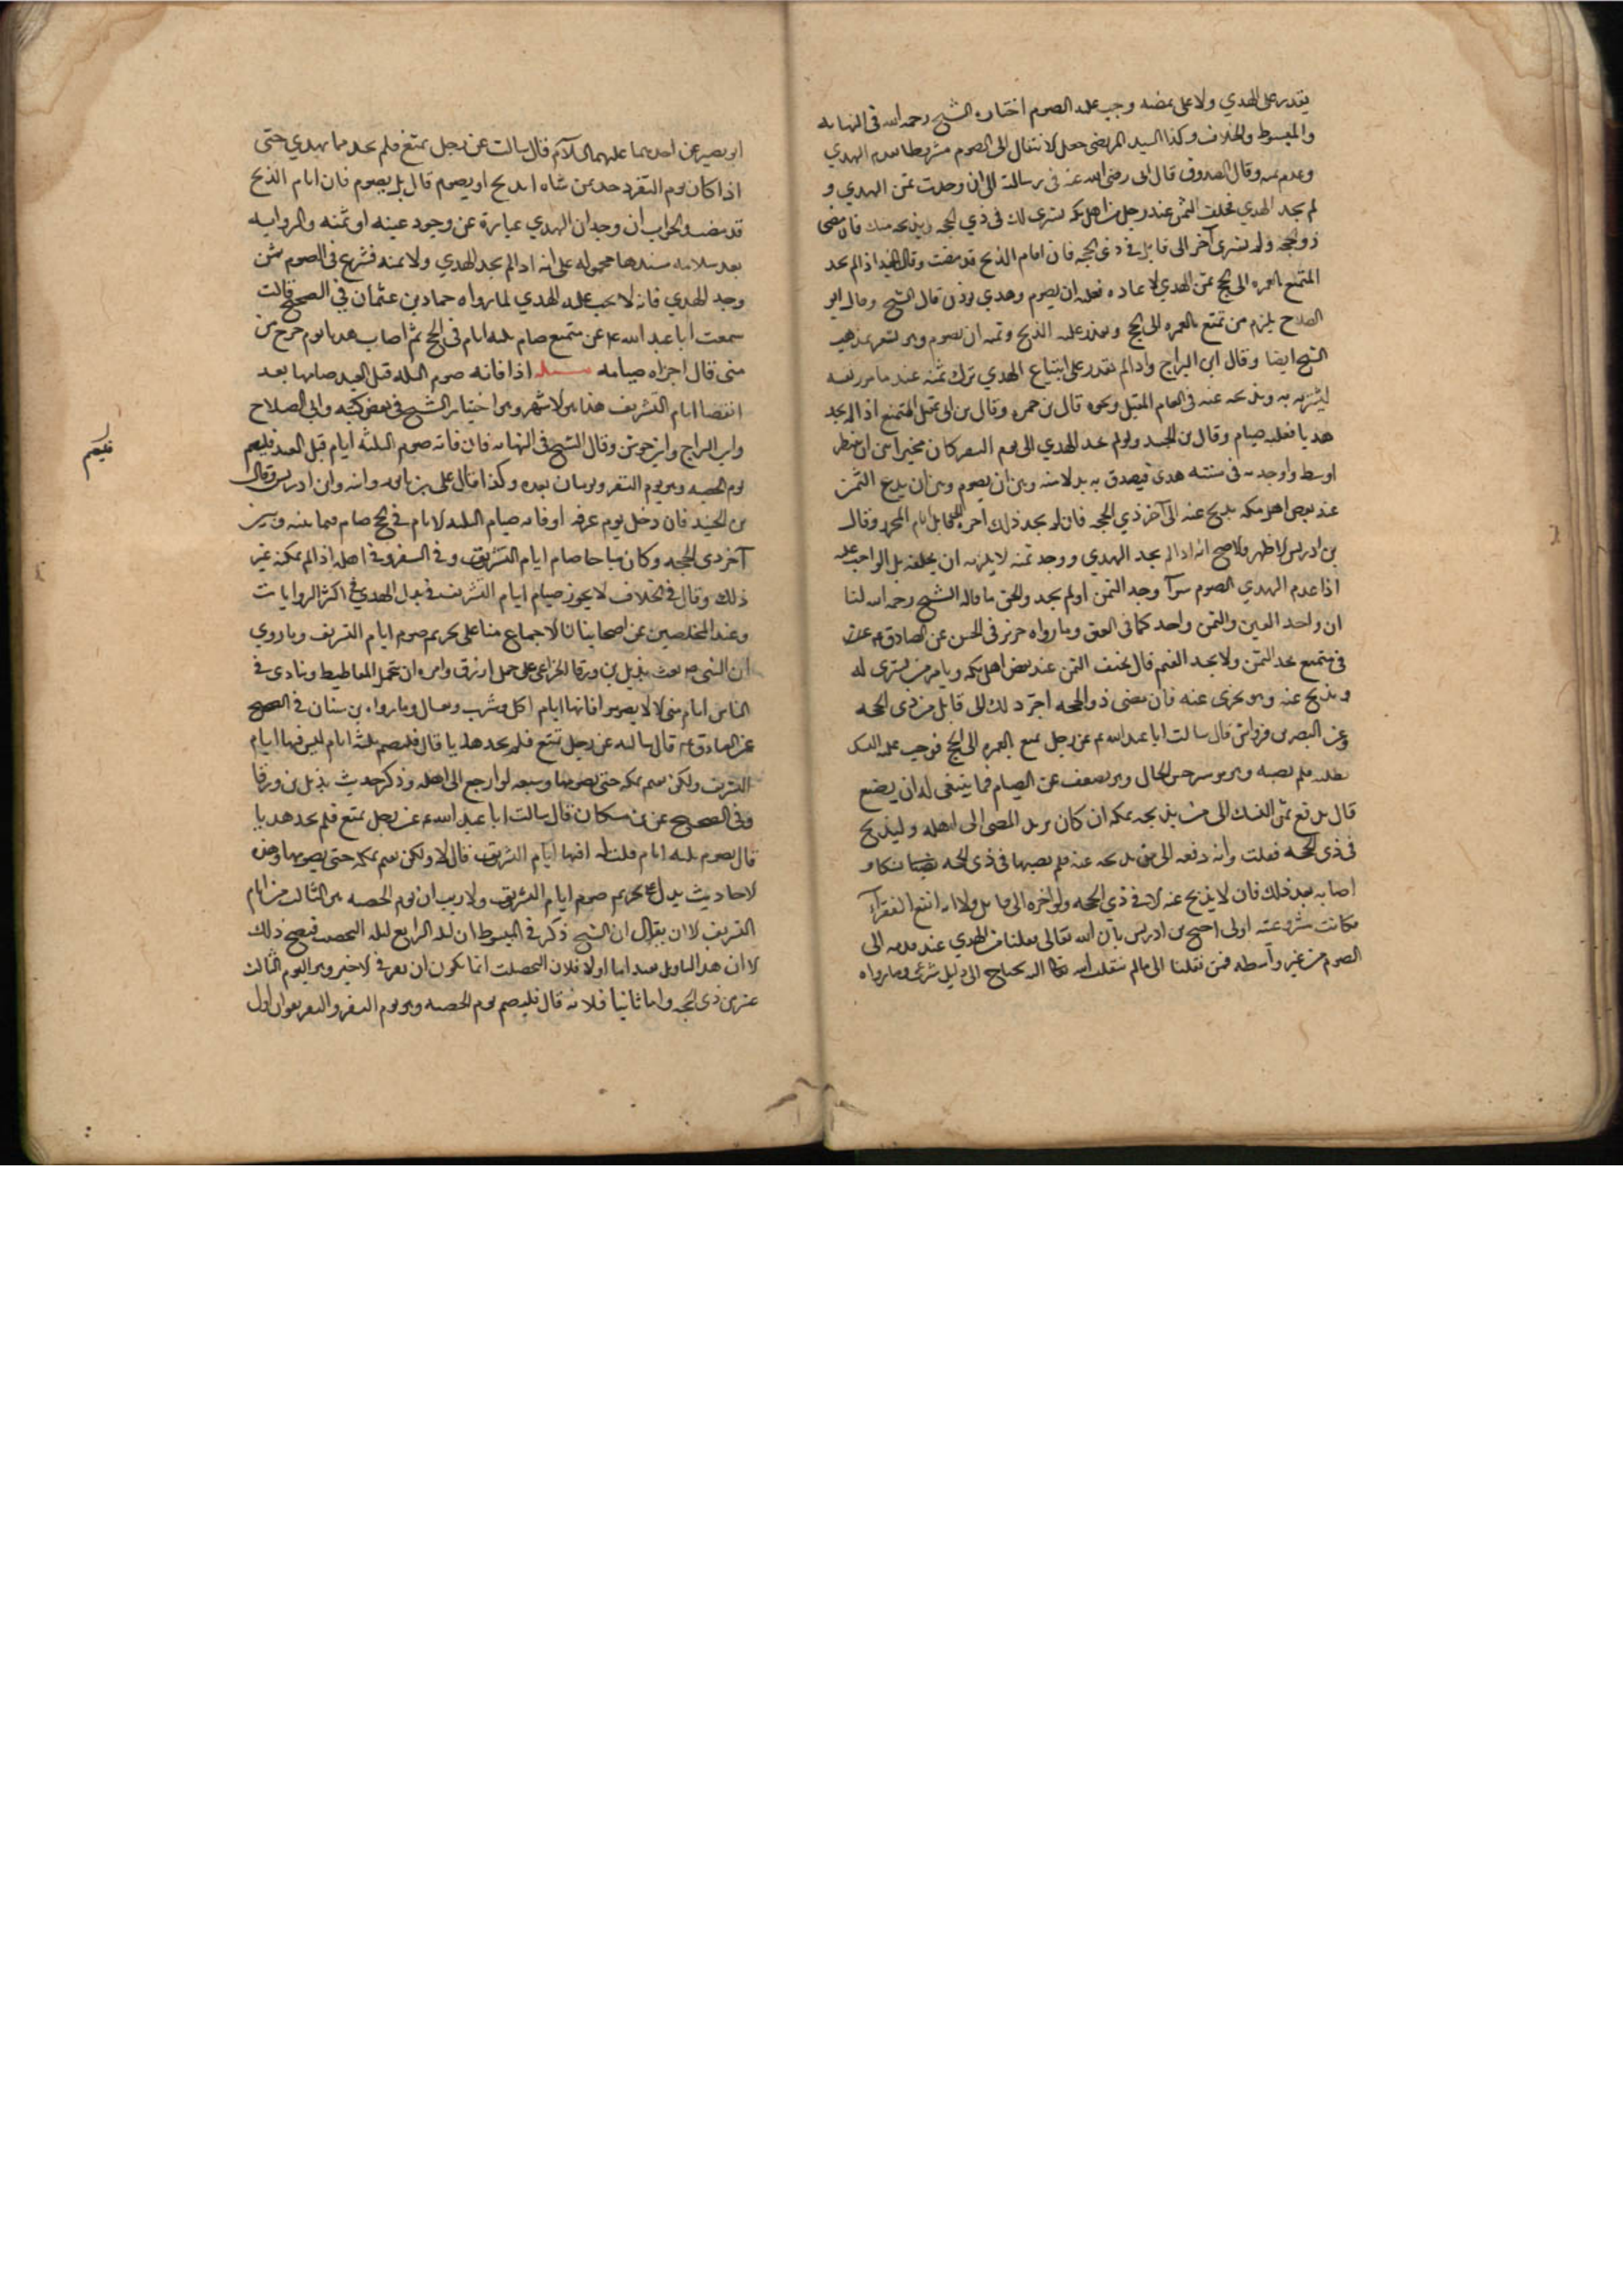 يقدر على الهدي ولا على بمضه وجب عليه الصوم اختاره الشيخ رحمه الله في النهايه
والمبسوط والخلاف وكذا السيد المرتضى جعل الانتقال الى الصوم مشروطا بعدم الهدي
وعدم ثمنه وقال الصدوق قال ابى رضى الله عنه في رسالته الى ان وجدت ثمن الهدي و
لم يجد الهدي فخلف الثمن عند رجل من اهل مكه يشترى لك في ذي الحجه ويذبحه عنك فان مضى
ذو الحجه ولم يشترى آخر الى قابل في ذي الحجه فان ايام الذبح قد مضت وقال المفيد اذا لم يجد
المتمتع بالعمره الى الحج ثمن الهدي لاعاده فعليه ان يصوم وهدي قال الشيخ وقال ابو
الصلاح يلزم من تمتع بالعمره الى الحج وتعذر عليه الذبح وثمنه ان يصوم وهو يشعر بمذهب
الشيخ ايضا وقال ابن البراج واذا لم يقدر على ابتياع الهدي ترك ثمنه عند من نفسه
ليشتريه به ويذبحه عنه في العام المقبل ونحوه قال بن حمزه وقال بن ابى عقيل المتمتع اذا لم يجد
هديا فعليه صيام وقال بن الجنيد ولو لم يجد الهدي الى يوم النفر كان مخيرا بين ان ينظر
اوسط ما وجد به في سنته هدى فيصدق به بدلا منه وبين ان يصوم وبين ان يدع الثمن
عند بعض اهل مكه يذبح عنه الى آخر ذي الحجه فان لم يجد ذلك اخره الى قابل ايام النحر وقال
بن ادريس الاظهر والاصح انه اذا لم يجد الهدي ووجد ثمنه لا يلزمه ان يخلفه بل الواجب عليه
اذا عدم الهدي الصوم سوآ وجد الثمن او لم يجد والحق ما قاله الشيخ رحمه الله لنا
ان واجد العين والثمن واحد كما في العتق وما رواه حريز في الحسن عن الصادق ع
في متمتع يجد الثمن ولا يجد الغنم قال يخلف الثمن عند بعض اهل مكه ويامر من يشترى له
ويذبح عنه وهو يجزى عنه فان مضى ذو الحجه اخر ذلك الى قابل من ذى الحجه
وعن النضر بن قرواش قال سالت ابا عبد الله ع عن رجل تمتع بالعمره الى الحج فوجب عليه النسك
فطلبه فلم يصبه وهو موسر حسن الحال وهو يضعف عن الصيام فما ينبغى له ان يصنع
قال يدفع ثمن النسك الى من يذبحه بمكه ان كان يريد المضى الى اهله وليذبح
في ذى الحجه فقلت فانه دفعه الى من يذبحه عنه فلم يصبها في ذى الحجه نسكا و
اصابه بعد ذلك قال لا يذبح عنه الا في ذي الحجه ولو اخره الى قابل ولانه انفع للفقرآء
فكانت مشروعيته اولى احتج بن ادريس بان الله تعالى نقلنا من الهدي عند عدمه الى
الصوم من غير واسطه فمن نقلنا الى ما لم ينقلنا الله تعالى اليه يحتاج الى دليل شرعى وما رواه
ابو بصير عن احدهما عليهما السلام قال سالت عن رجل تمتع فلم يجد ما يهدي حتى
اذا كان يوم النفر وجد ثمن شاه ايذبح او يصوم قال بل يصوم فان ايام الذبح
قد مضت والجواب ان وجدان الهدي عبارة عن وجود عينه او ثمنه والروايه
بعد سلامه سندها محموله على انه اذا لم يجد الهدي ولا ثمنه فشرع في الصوم ثمن
وجد الهدي فانه لا يجب عليه الهدي لما رواه حماد بن عثمان في الصحيح قال
سمعت ابا عبد الله ع عن متمتع صام ثلثه ايام في الحج ثم اصاب هديا يوم خرج من
منى قال اجزاه صيامه مسئله اذا فاته صوم الثلثه قبل العيد صامها بعد
انقضا ايام التشريف هذا هو الاشهر وهو اختيار الشيخ في بعض كتبه وابى الصلاح
وابن البراج وابن حمزه وقال الشيخ في النهايه فان فاته صوم الثلثه ايام قبل العيد فليصم
يوم الحصبه وهو يوم النفر ويومان بعده وكذا قال على بن بابويه وابنه وابن ادريس وقال
بن الجنيد فان دخل يوم عرفه او فاته صيام الثلثه الايام في الحج صام فيما بينه وبين
آخر ذي الحجه وكان مباحا صام ايام التشريق وفي السفر وفي اهله اذا لم يمكنه غير
ذلك وقال في الخلاف لا يجوز صيام ايام التشريف في بدل الهدي في اكثر الروايات
وعند المحصلين من اصحابنا لنا الاجماع منا على تحريم صوم ايام التشريف وما روي
ان النبي ص بعث بذيل بن ورقا الخزاعى على جمل اورق وامره ان يتخلل الفساطيط وينادى في
الناس ايام منى الا لا يصوموا فانها ايام اكل وشرب وبعال وما رواه بن سنان في الصحيح
عن الصادق ع قال سالته عن رجل تمتع فلم يجد هديا قال فليصم ثلثه ايام ليس فيها ايام
التشريق ولكن يقيم بمكه حتى يصومها وسبعه لو ارجع الى اهله وذكر حديث بذيل بن ورقا
وفي الصحيح عن بن مسكان قال سالت ابا عبد الله ع عن رجل تمتع فلم يجد هديا
قال يصوم ثلثه ايام قلت له افيها ايام التشريق قال لا ولكن يقيم بمكه حتى يصومها وهذه
الاحاديث يدل على تحريم صوم ايام التشريق ولا ريب ان يوم الحصبه هو الثالث من ايام
التشريف لا ان يقال ان الشيخ ذكر في المبسوط ان ليله الرابع ليله التحصيب فيصح ذلك
لا ان هذا التاويل بعيد اما اولا فلان التحصيب انما يكون ان نفر في الاخير وهو اليوم الثالث
عشر من ذى الحجه واما ثانيا فلانه قال فليصم يوم الحصبه وهو يوم النفر والنفر نفران اول
فليصم